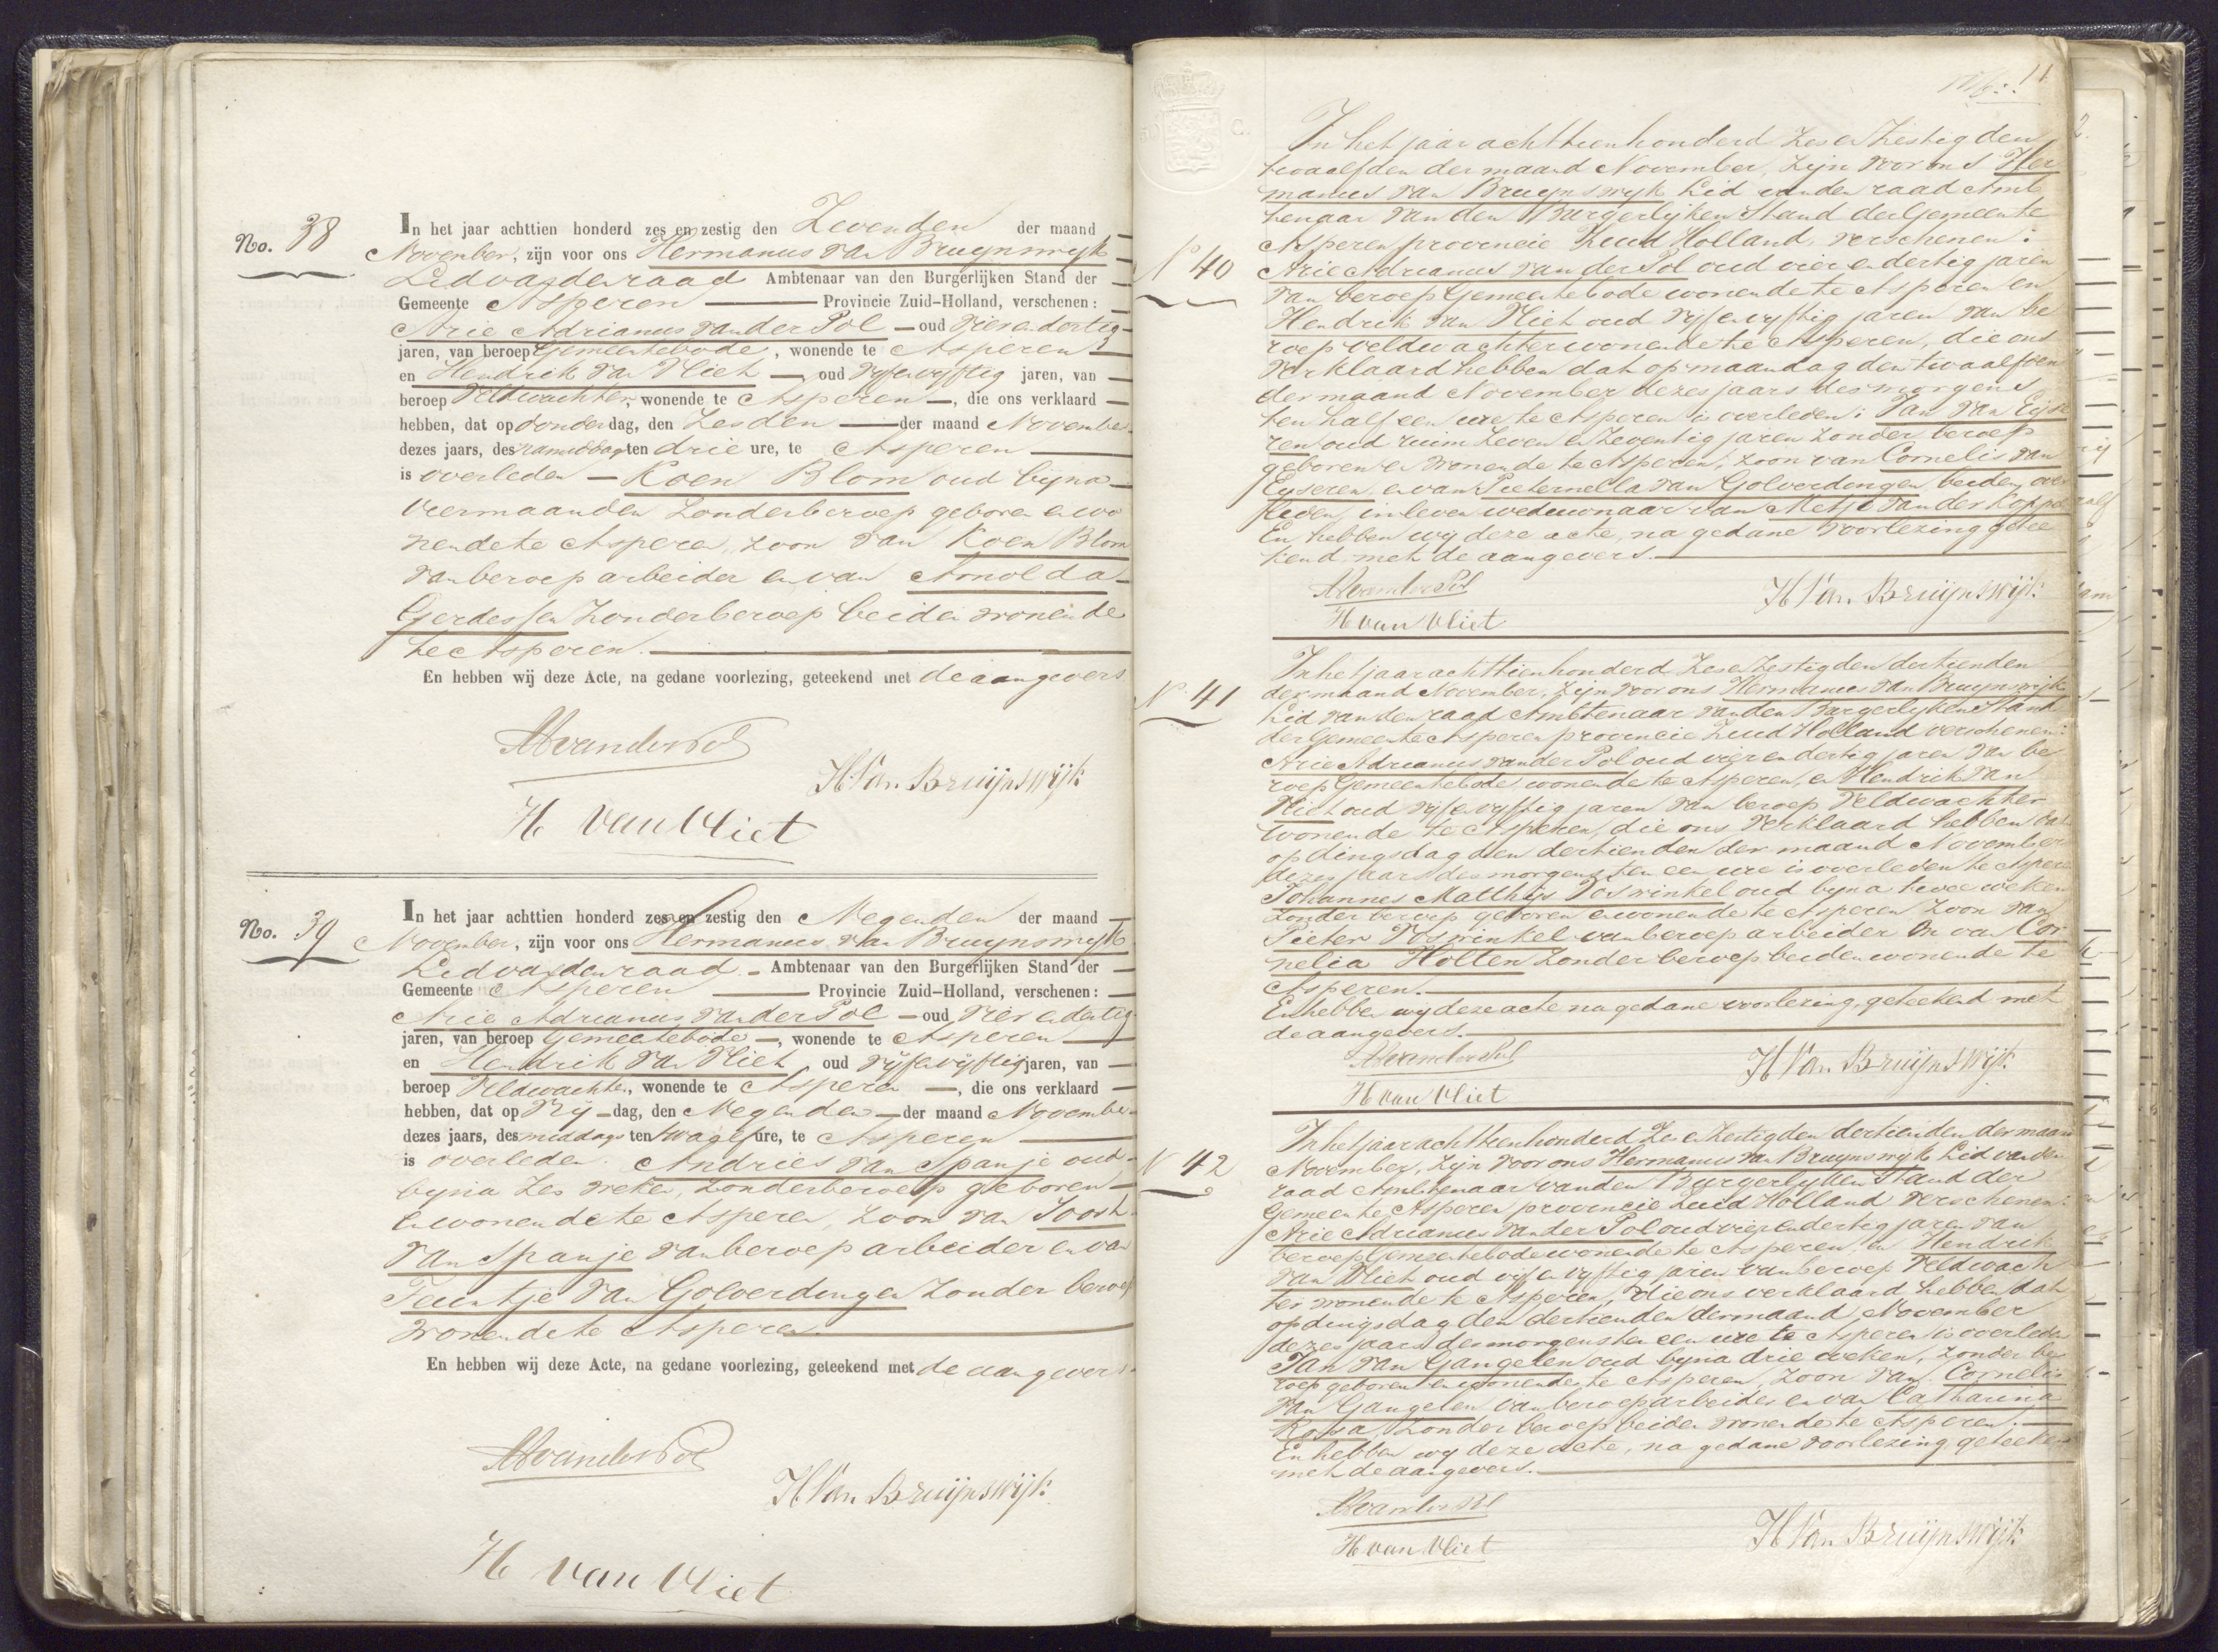 No. 38
In het jaar achttien honderd zes en zestig den Zevenden der maand
November, zijn voor ons Hermanus van Bruynswyk
Lid van den raad Ambtenaar van den Burgerlijken Stand der
Gemeente Asperen Provincie Zuid-Holland, verschenen:
Arie Adrianus van der Pol oud vier en dertig
jaren, van beroep Gemeentebode, wonende te Asperen
en Hendrik van Vliet oud vyf en vyftig jaren, van
beroep Veldwachter, wonende te Asperen, die ons verklaard
hebben, dat op donderdag, den Zesden der maand November
dezes jaars, des namiddags ten drie ure, te Asperen
is overleden Koen Blom oud byna
vier maanden zonder beroep geboren en wo
nende te Asperen, zoon van Koen Blom
van beroep arbeider en van Arnolda
Gerdessen zonder beroep beiden wonende
te Asperen.
En hebben wij deze Acte, na gedane voorlezing, geteekend met de aangevers
AAvanderPol
H Van Bruijnswijk
H van Vliet
No. 39
In het jaar achttien honderd zes en zestig den Negenden der maand
November, zijn voor ons Hermanus van Bruynswyk
Lid van den raad Ambtenaar van den Burgerlijken Stand der
Gemeente Asperen Provincie Zuid-Holland, verschenen:
Arie Adrianus van der Pol oud vier en dertig
jaren, van beroep Gemeentebode, wonende te Asperen
en Hendrik van Vliet oud vyf en vyftig jaren, van
beroep Veldwachter, wonende te Asperen, die ons verklaard
hebben, dat op Vry-dag, den Negenden der maand November
dezes jaars, des middags ten twaalf ure, te Asperen
is overleden. Andries van Spanje oud
byna zes weken, zonder beroep geboren
en wonende te Asperen, zoon van Joost
van Spanje van beroep arbeider en van
Teuntje van Golverdingen zonder beroep
wonende te Asperen.
En hebben wij deze Acte, na gedane voorlezing, geteekend met de aangevers.
AAvanderPol
H Van Bruijnswijk
H van Vliet
11
No 40
In het jaar achttienhonderd zes en zestig den
twaalfden der maand November, zijn voor ons Her
manus van Bruynswyk Lid van den raad Amb
tenaar van den Burgerlyken Stand der Gemeente
Asperen provincie Zuid Holland, verschenen:
Arie Adrianus van der Pol oud vier en dertig jaren
van beroep Gemeentebode wonende te Asperen en
Hendrik van Vliet oud vyf en vyftig jaren van be
roep veldwachter wonende te Asperen, die ons
verklaard hebben dat op maandag den twaalfden
der maand November dezes jaars des morgens
ten half een ure te Asperen is overleden: Jan van Eyse
ren oud ruim zeven en zeventig jaren zonder beroep
geboren en wonende te Asperen, zoon van Cornelis van
Eyseren, en van Pieternella van Golverdingen beiden over
leden, in leven weduwnaar van Metje van der Koppel
En hebben wy deze acte, na gedane voorlezing getee
kend, met de aangevers.
AAvanderPol
H Van Bruijnswijk
H van Vliet
No 41
In het jaar achttienhonderd zes en zestig den dertienden
der maand November, zijn voor ons Hermanus van Bruynswyk
Lid van den raad Ambtenaar van den Burgerlyken Stand
der Gemeente Asperen provincie Zuid Holland verschenen:
Arie Adrianus van der Pol oud vier en dertig jaren van be
roep Gemeentebode, wonende te Asperen, en Hendrik van
Vliet oud vyf en vyftig jaren van beroep Veldwachter
wonende te Asperen, die ons verklaard hebben dat
op dingsdag den dertienden der maand November
dezes jaars des morgens ten een ure is overleden te Asperen
Johannes Matthijs Voswinkel oud byna twee weken
zonder beroep geboren en wonende te Asperen zoon van
Pieter Voswinkel van beroep arbeider en van Cor
nelia Holten zonder beroep beiden wonende te
Asperen.
En hebben wy deze acte na gedane voorlezing, geteekend met
de aangevers.
AAvanderPol
H Van Bruijnswijk
H van Vliet
N 42
In het jaar achttienhonderd zes en zestig den dertienden der maand
November, zijn voor ons Hermanus van Bruynswyk Lid van den
raad Ambtenaar van den Burgerlyken Stand der
Gemeente Asperen provincie Zuid Holland verschenen:
Arie Adrianus van der Pol oud vier en dertig jaren van
beroep Gemeentebode wonende te Asperen, en Hendrik
van Vliet oud vyf en vyftig jaren van beroep Veldwach
ter wonende te Asperen, die ons verklaard hebben dat
op dingsdag den dertienden der maand November
dezes jaars des morgens ten een ure te Asperen is overleden
Jan van Gangelen oud byna drie weken, zonder be
roep geboren en wonende te Asperen, zoon van Cornelis
van Gangelen van beroep arbeider en van Catharina
zonder beroep beiden wonende te Asperen.
En hebben wy deze acte, na gedane voorlezing geteekend
met de aangevers.
AAvanderPol
H Van Bruijnswijk
H van Vliet